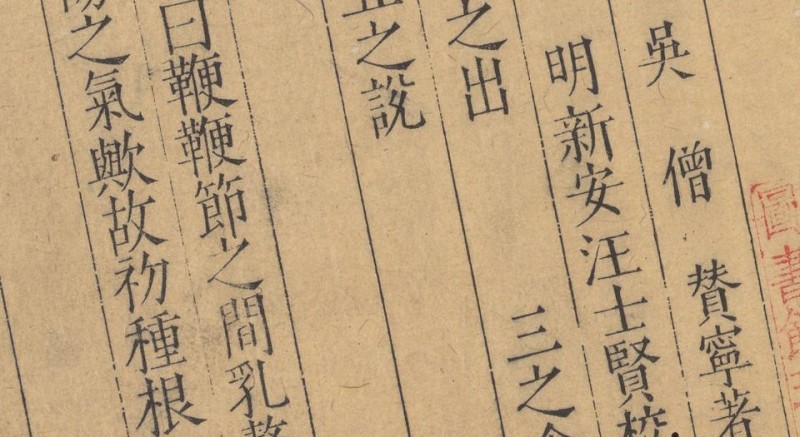 吳　僧　贊寧著
明新安汪士賢校
之出　　三之食
之説
曰鞭鞭節之間乳
之氣歟故初種根
圖書館